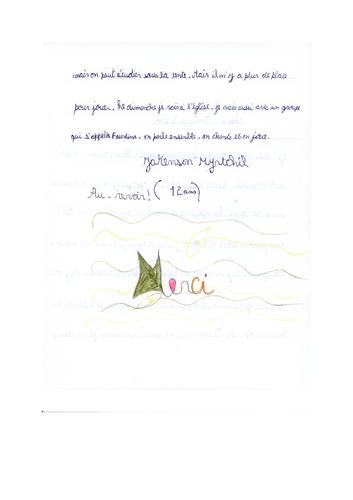 mais on peut étudier sous la tente. Mais il n'y a plus de place
pour jouer. Le dimanche je vais à l'église, je vais aussi avec un groupe
qui s'appelle on parle ensemble, on chante et on joue.
Jakenson Myrtchil
Au-revoir! (12 ans)
Merci